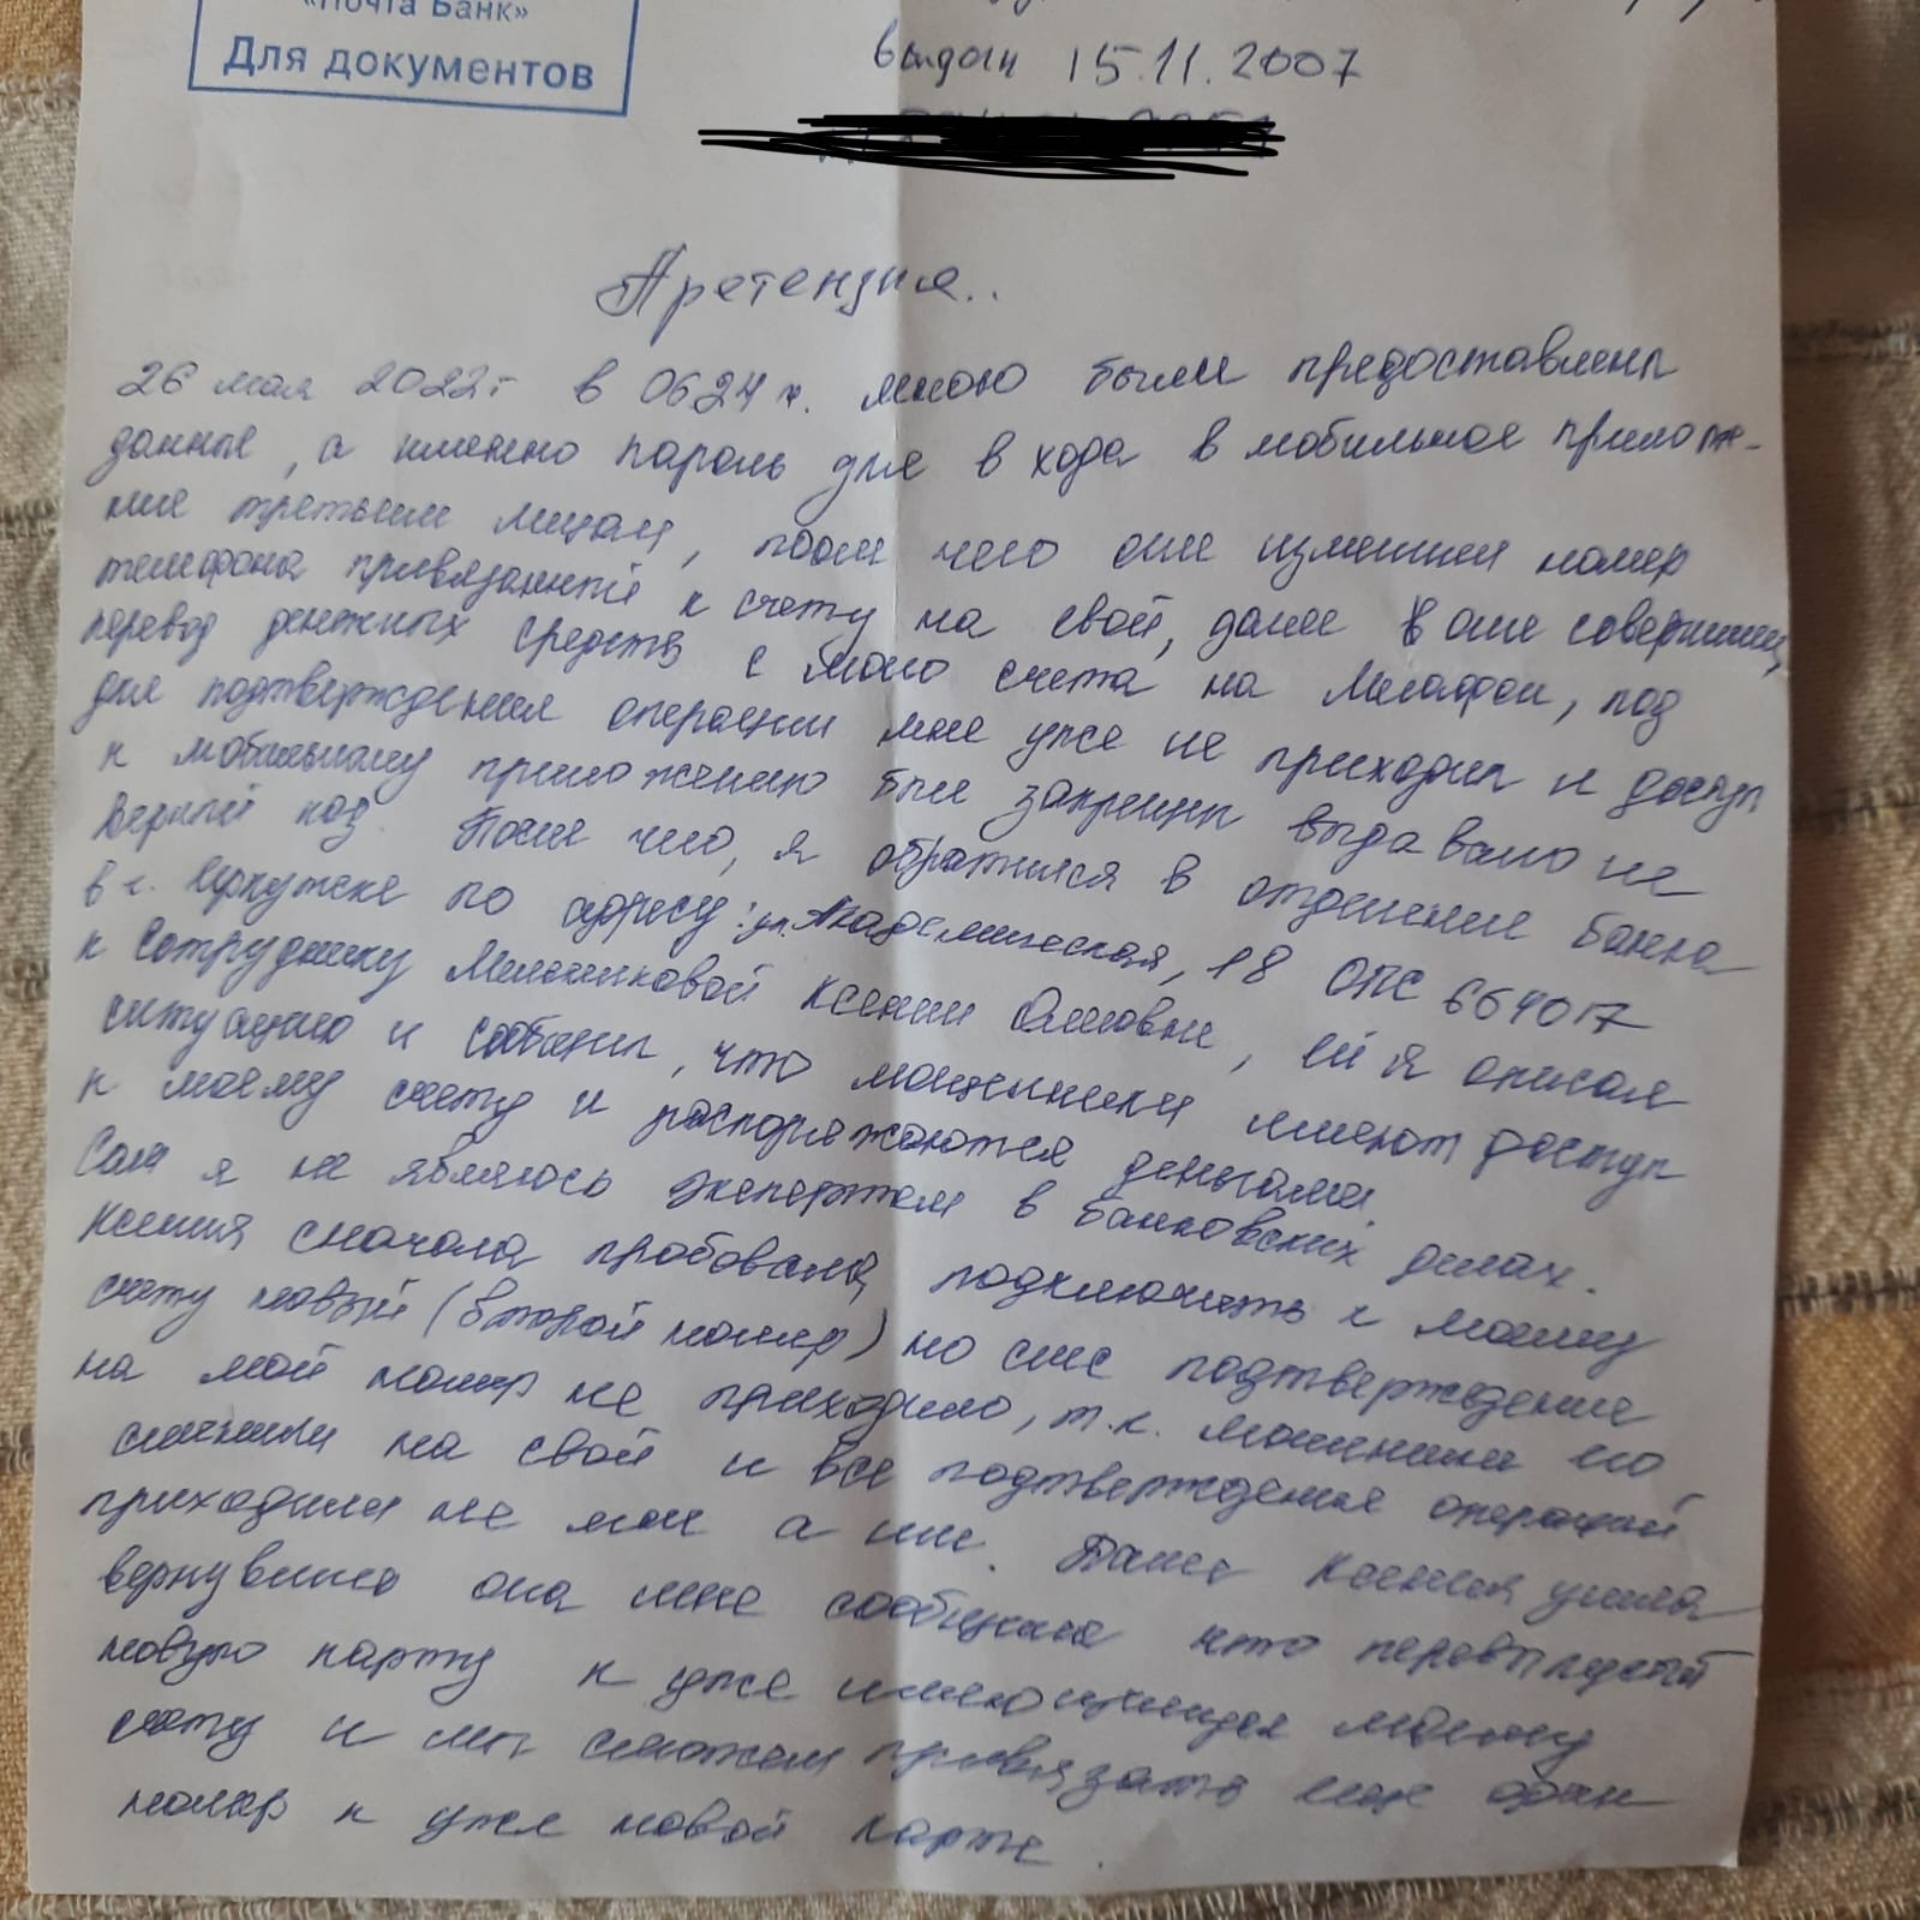 «Почта Банк»
Для документов
выдан 15.11.2007
Претензия..
26 мая 2022г в 0624 ч. мною были предоставлены
данные, а именно пароль для входа в мобильное приложе-
ние третьим лицам, после чего они изменили номер
телефона привязанный к счету на свой, далее они совершили
перевод денежных средств с моего счета на Мегафон, код
для подтверждения операции мне уже не приходил и доступ
к мобильному приложению был запрещен выдавало не
верный код. После чего, я обратился в отделение банка
в г. Иркутске по адресу: ул. Академическая, 18 ОПС 664017
к сотруднику Мельниковой Ксении Олеговне, ей я описал
ситуацию и сообщил, что мошенники имеют доступ
к моему счету и распоряжаются деньгами.
Сам я не являюсь экспертом в банковских делах.
Ксения сначала пробовала подключить к моему
счету новый (второй номер) но смс подтверждение
на мой номер не приходило, т.к. мошенники его
сменили на свой и все подтверждения операций
приходили не мне а им. Далее Ксения ушла
вернувшись она мне сообщила что перевыпустит
новую карту к уже имеющемуся моему
счету и мы сможем привязать еще один
номер к уже новой карте.